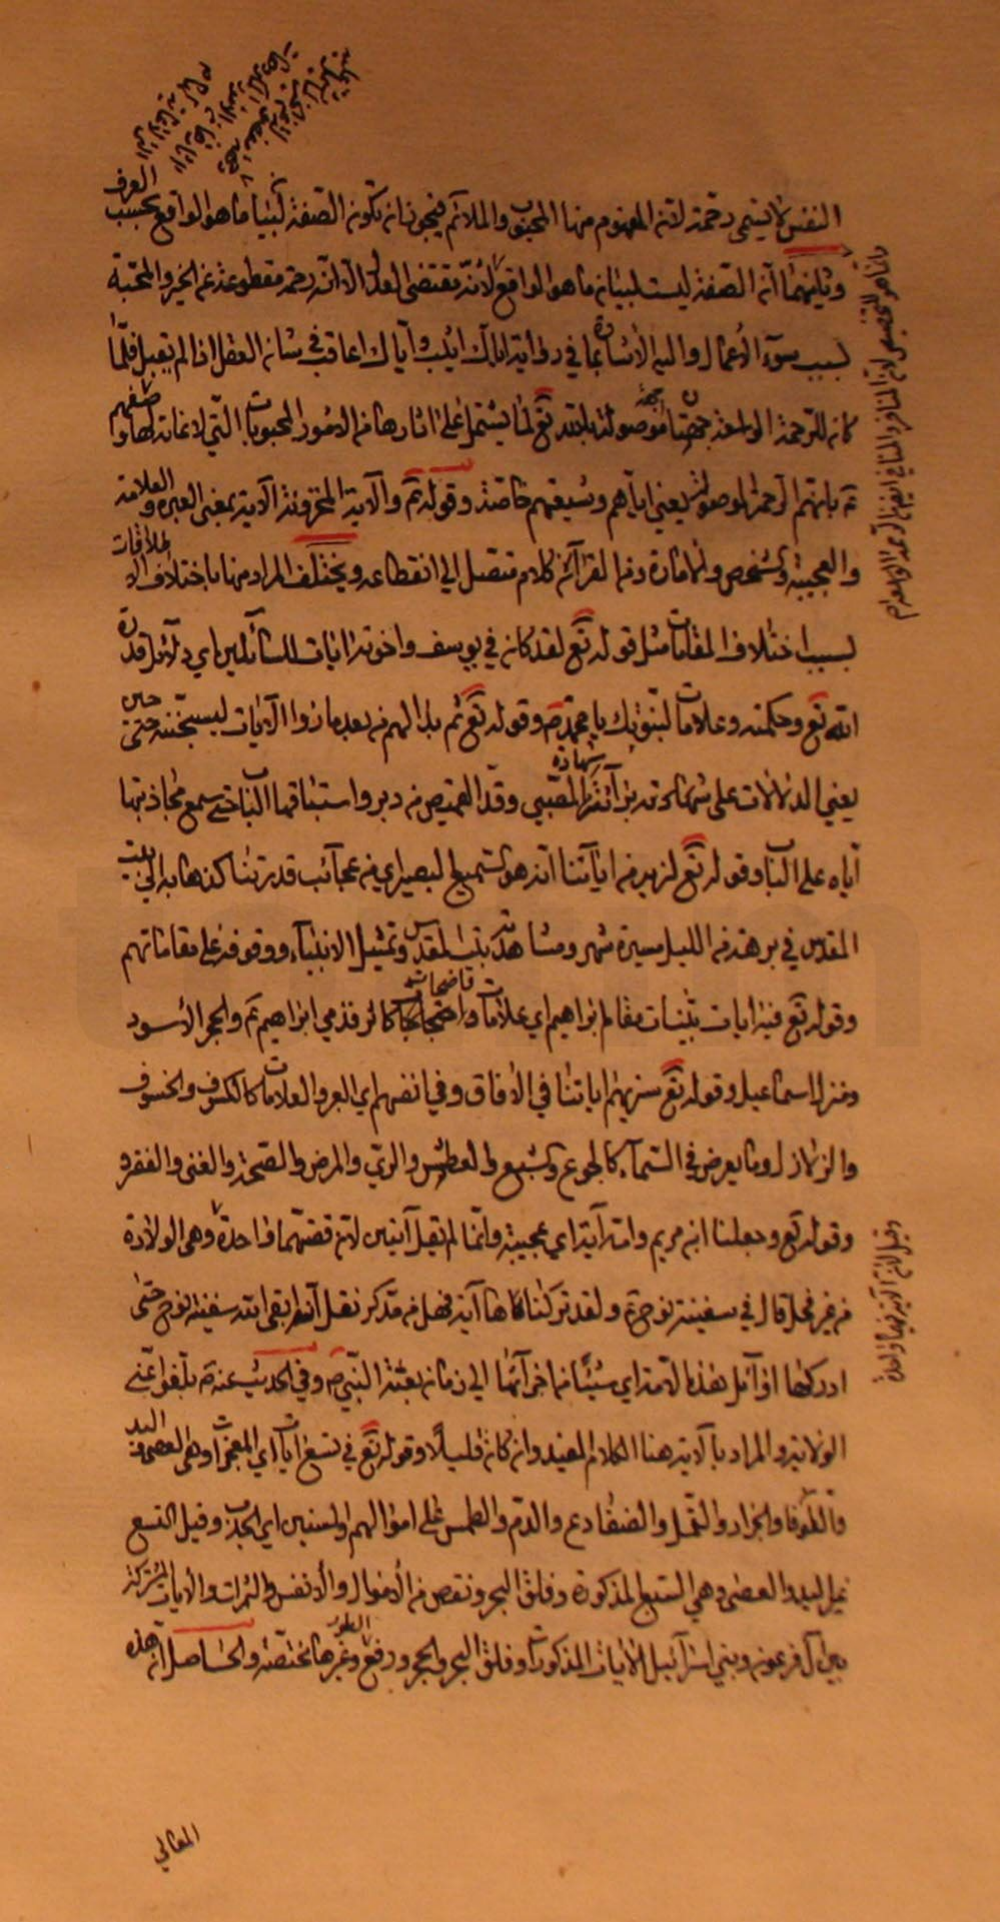 النفس لا يسمى رحمة لان المفهوم منها المحبوب والملائم فيجوز ان تكون الصفة لبيان ما هو الواقع بحسب العرف
وثانيهما ان الصفة ليست لبيان ما هو الواقع لانه مقتضى العدل الا انه رحمة مقطوعة عن الخير والمحبة
بسبب سوء الاعمال واليه الاشارة بما في رواية اياك اثيب واياك اعاقب في شان العقل اذا لم يقبل فلما
كان للرحمة الواسعة جهتان موصولة بالله تع لما يشتمل على اثارها من الامور المحبوبات التي لا غاية لها وصفهم
ع بانهم الرحمة الموصولة يعني اياهم وشيعتهم خاصة وقوله ع والاية المخزونة الاية بمعنى العبرة والعلامة
والعجيبة والشخص والامارة ومن القران كلام متصل الى انقطاعه ويختلف المراد منها باختلاف الاطلاقات
بسبب اختلاف المقامات مثل قوله تع لقد كان في يوسف واخوته ايات للسائلين اي دلائل قدرة
الله تع وحكمته وعلامات لنبوتك يا محمد ص وقوله تع ثم بدا لهم من بعد ما راوا الايات ليسجننه حتى حين
يعني الدلالات على شهادة الصبي وقد القميص من دبر واستباقهما الباب حتى سمع مجاذبتها
اياه على الباب وقوله تع لنريه من اياتنا انه هو السميع البصير اي من عجائب قدرتنا كذهابه الى بيت
المقدس في برهة من الليل مسيرة شهر ومشاهدته بيت المقدس وتمثيل الانبياء ووقوفه على مقاماتهم
وقوله تع فيه ايات بينات مقام ابراهيم اي علامات واضحات كاثر قدمي ابراهيم ع والحجر الاسود
ومنزل اسماعيل وقوله تع سنريهم اياتنا في الافاق وفي انفسهم اي العبر والعلامات كالكسوف والخسوف
والزلازل وما يعرض في السماء كالجوع والشبع والعطش والري والمرض والصحة والغنى والفقر و
وقوله تع وجعلنا ابن مريم وامه آية اي عجيبة وانما لم يقل آيتين لان قصتهما واحدة وهي الولادة
من غير فحل قال في سفينة نوح ع ولقد تركناها آية فهل من مدكر نقل انه ابقى الله سفينة نوح حتى
ادركتها اوائل هذه الامة اي شيئا من اجزائها الى زمان بعثة النبي ص وفي الحديث عنه ص بلغوا عني
ولو آية والمراد بالاية هنا الكلام المفيد وان كان قليلا وقوله تع في تسع ايات اي المعجزات وهى العصى واليد
والطوفان والجراد والقمل والضفادع والدم والطمس على اموالهم والسنين اي الجدب وقيل التسع
غير اليد والعصى وهي السبع المذكورة وفلق البحر ونقص من الاموال والانفس والثمرات والايات المشتركة
بين آل فرعون وبني اسرائيل الايات المذكورات وفلق البحر والحجر ورفع الطور وغيرها مختصة والحاصل ان هذه